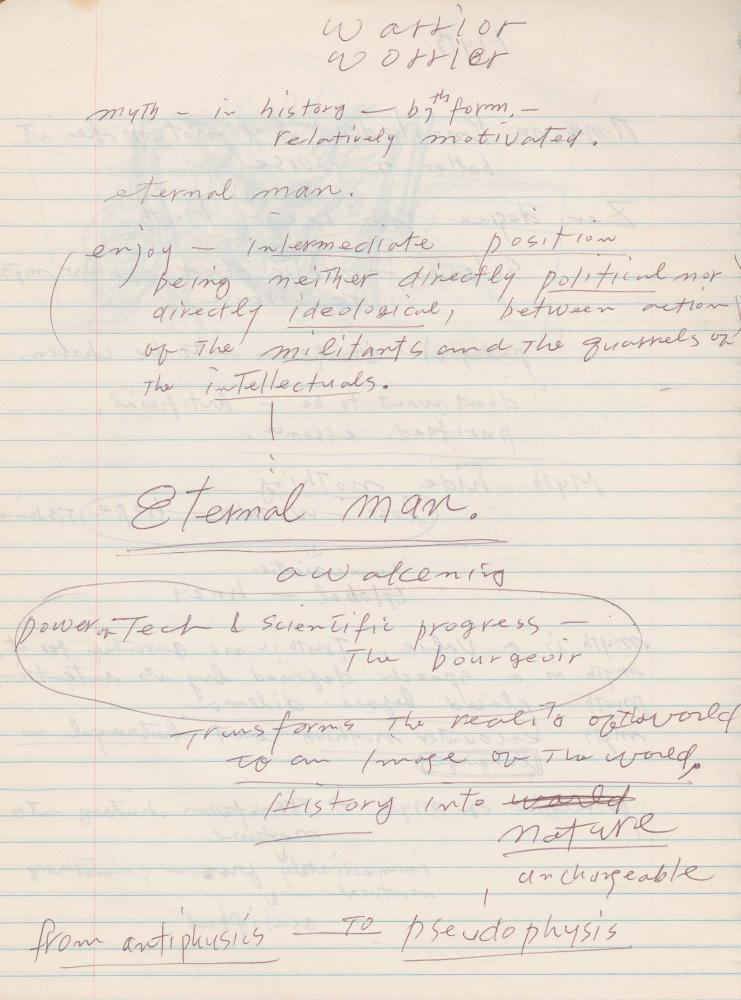 warrior
worrier
myth – in history – by th form, –
relatively motivated.
eternal man.
enjoy – intermediate position
being neither directly political nor
directly ideological, between action
of the militants and the quarrels of
the intellectuals.
Eternal man.
awakening
power of Tech & Scientific progress –
The bourgeoir
Transforms the reality of the world
to an Image of The world.
History into world
nature
unchargeable
from antiphysis to pseudophysis